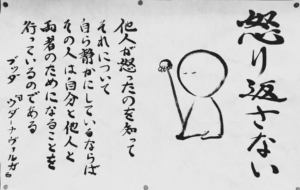 怒り返さない
他人が怒ったのを知って
それについて
自ら静かにしているならば
その人は自分と他人と
両者のためになることを
行っているのである
ブッダ ウダーナヴァルガ